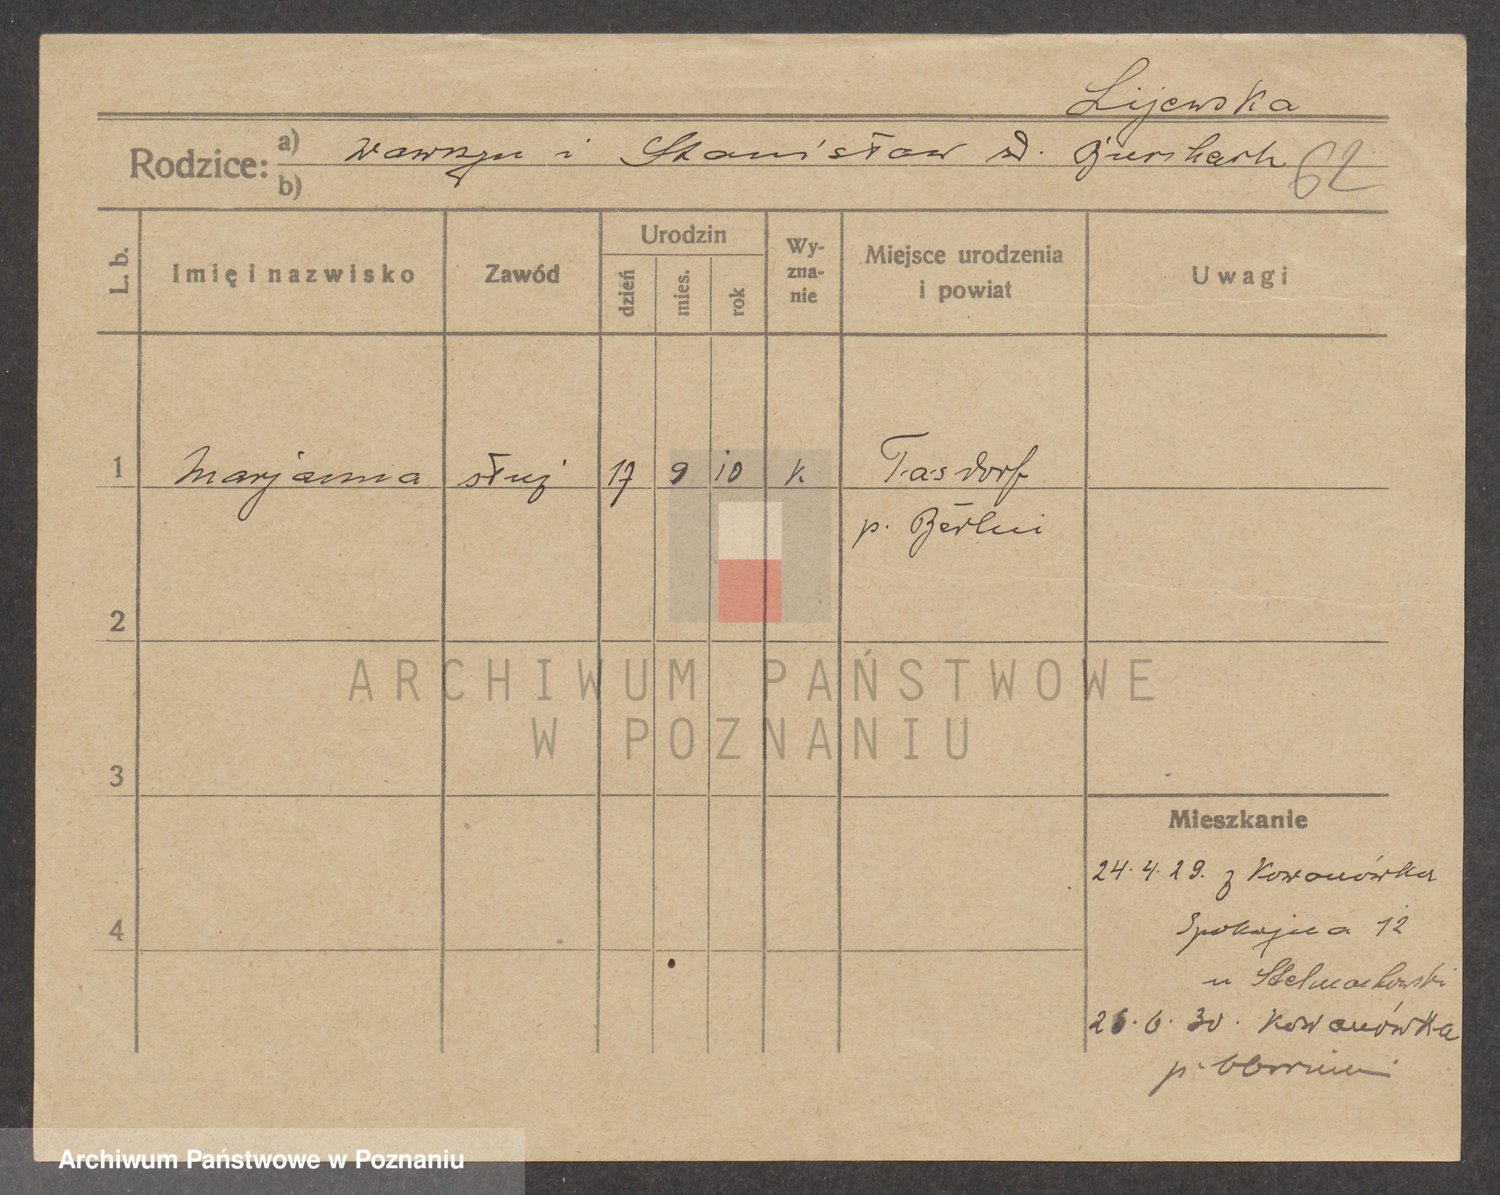 Lijewska
Rodzice: a) Wawrzyn i Stanisław d. Burchard 62
b)
L. b.
Imię i nazwisko
Zawód
Urodzin
dzień
mies.
rok
Wy-
zna-
nie
Miejsce urodzenia
i powiat
Uwagi
1 Marjanna służ 17 9 10 k. Tasdorf
p. Berlin
2
3
4
Mieszkanie
24.4.29. z Kowanówka
Spokojna 12
u Stelmachowski
26.6.30. Kowanówka
p. Oborniki
ARCHIWUM PAŃSTWOWE
W POZNANIU
Archiwum Państwowe w Poznaniu